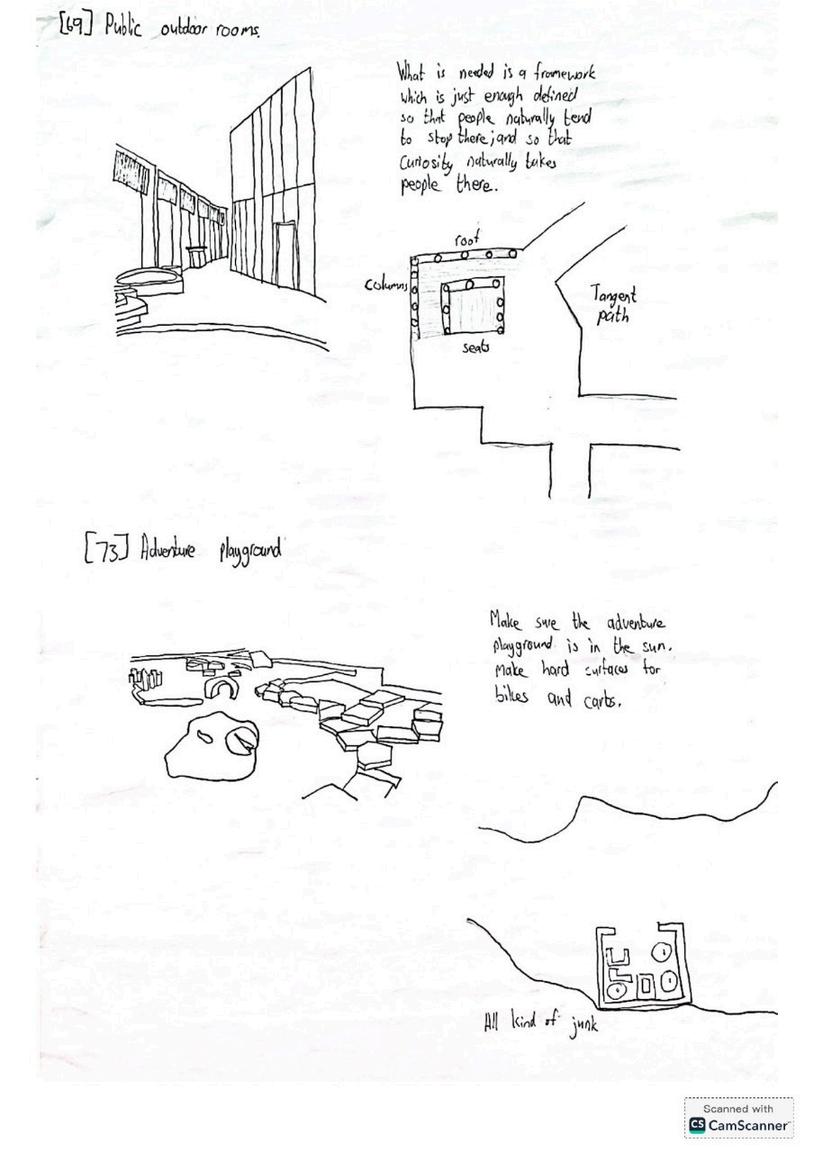 [69] Public outdoor rooms.
What is needed is a framework
which is just enough defined
so that people naturally tend
to stop there; and so that
curiosity naturally takes
people there.
roof
columns
Tangent
path
seats
[73] Adventure playground
Make sure the adventure
playground is in the sun.
Make hard surfaces for
bikes and carts.
All kind of junk
Scanned with
CS CamScanner